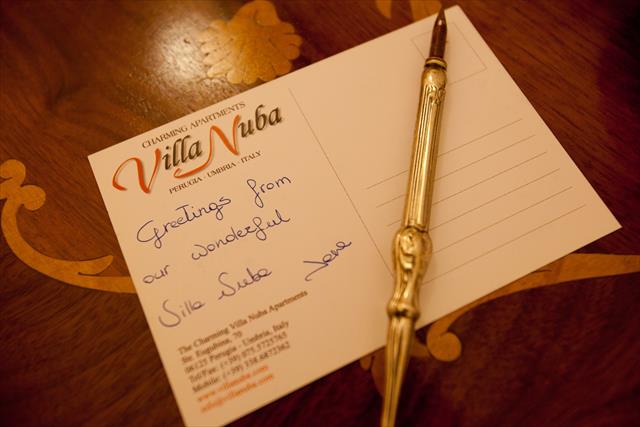 CHARMING APARTMENTS
Villa Nuba
PERUGIA - UMBRIA - ITALY
Greetings from
our wonderful
Villa Nuba
The Charming Villa Nuba Apartments
Str. Eugubina, 70
06125 Perugia - Umbria, Italy
Tel/Fax: (+39) 075.5725765
Mobile: (+39) 338.6872362
www.villanuba.com
info@villanuba.com